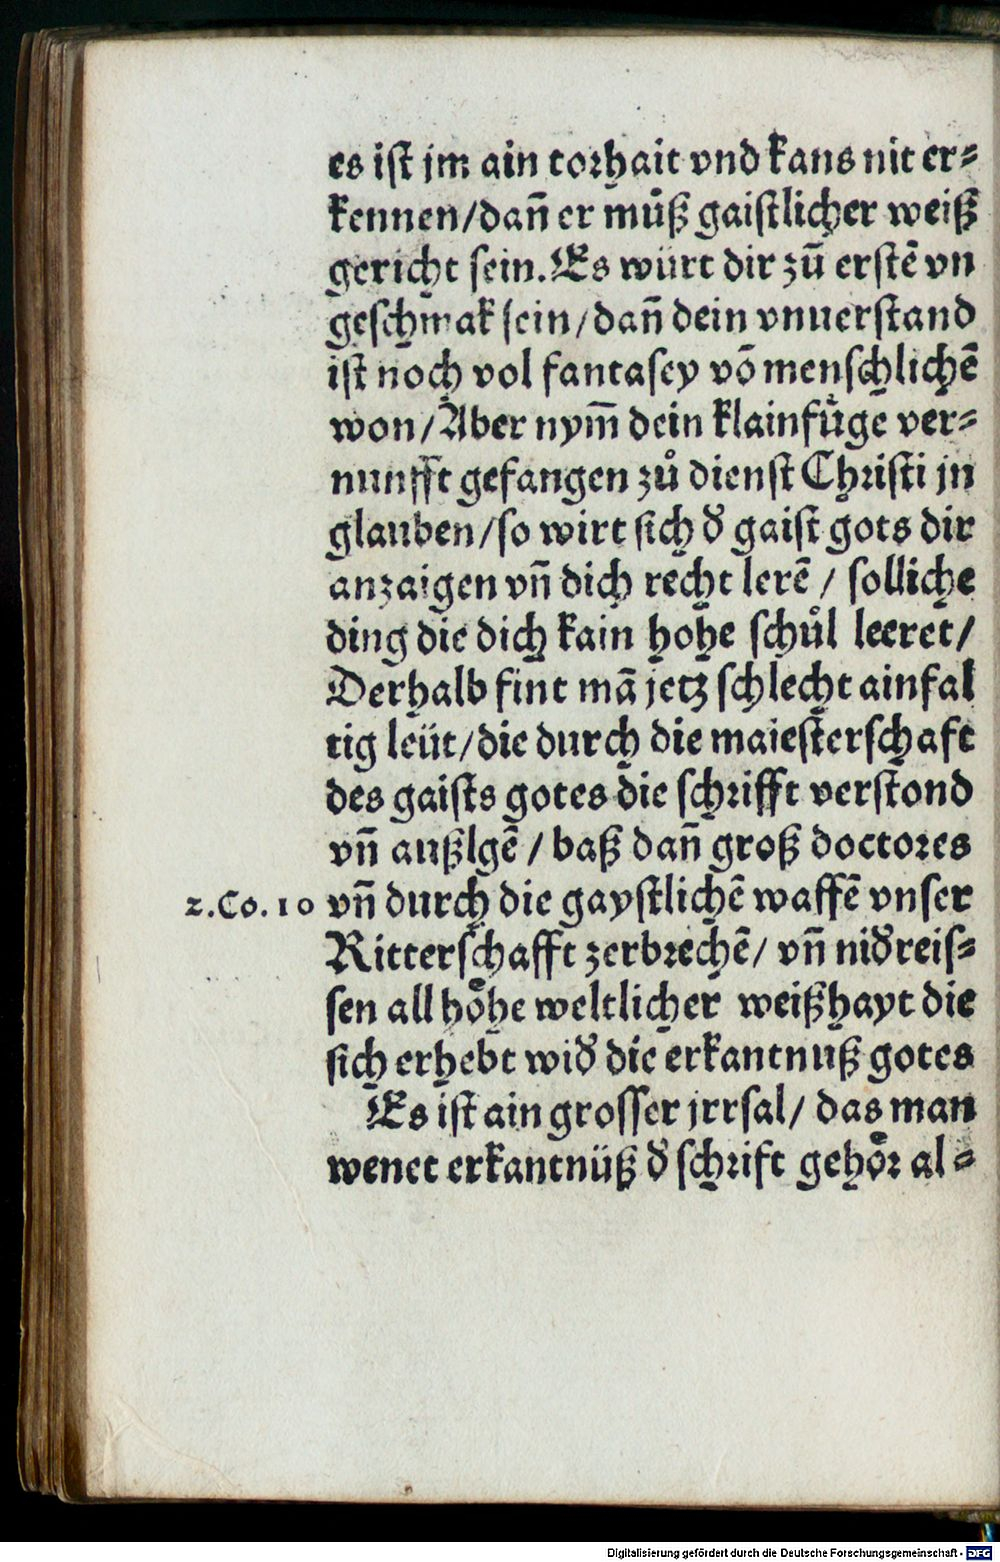 es ist jm ain torhait vnd kans nit er⸗
kennen/dañ er můß gaistlicher weiß
gericht sein. Es würt dir zů erstē vn
geschmak sein/dañ dein vnuerstand
ist noch vol fantasey vō menschlichē
won/Aber nym̄ dein klainfůge ver⸗
nunfft gefangen zů dienst Christi jn
glauben/so wirt sich đ gaist gots dir
anzaigen vñ dich recht lerē / solliche
ding die dich kain hohe schůl leeret/
Derhalb fint mā jetz schlecht ainfal
tig leüt/die durch die maiesterschaft
des gaists gotes die schrifft verstond
vñ außlgē / baß dañ groß doctores
2.Co.10 vñ durch die gaystlichē waffē vnser
Ritterschafft zerbrechē/ vñ niđreis⸗
sen all hoͤhe weltlicher weißhayt die
sich erhebt wiđ die erkantnuß gotes
Es ist ain grosser jrrsal/ das man
wenet erkantnüß đ schrift gehoͤr al⸗
Digitalisierung gefördert durch die Deutsche Forschungsgemeinschaft - DFG